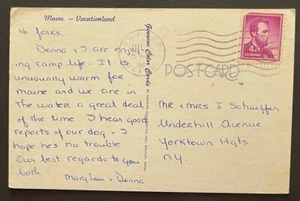 Maine - Vacationland
Hi folks,
Donna & I are enjoy
ing camp life. It is
unusually warm for
maine and we are in
the water a great deal
of the time. I hear good
reports of our dog - I
hope he's no trouble
Our best regards to you
both.
Marylou & Donna
Genuine Color Cards
POSTCARD
Mr & Mrs J Schaeffer
Underhill Avenue
Yorktown Hgts
N.Y.